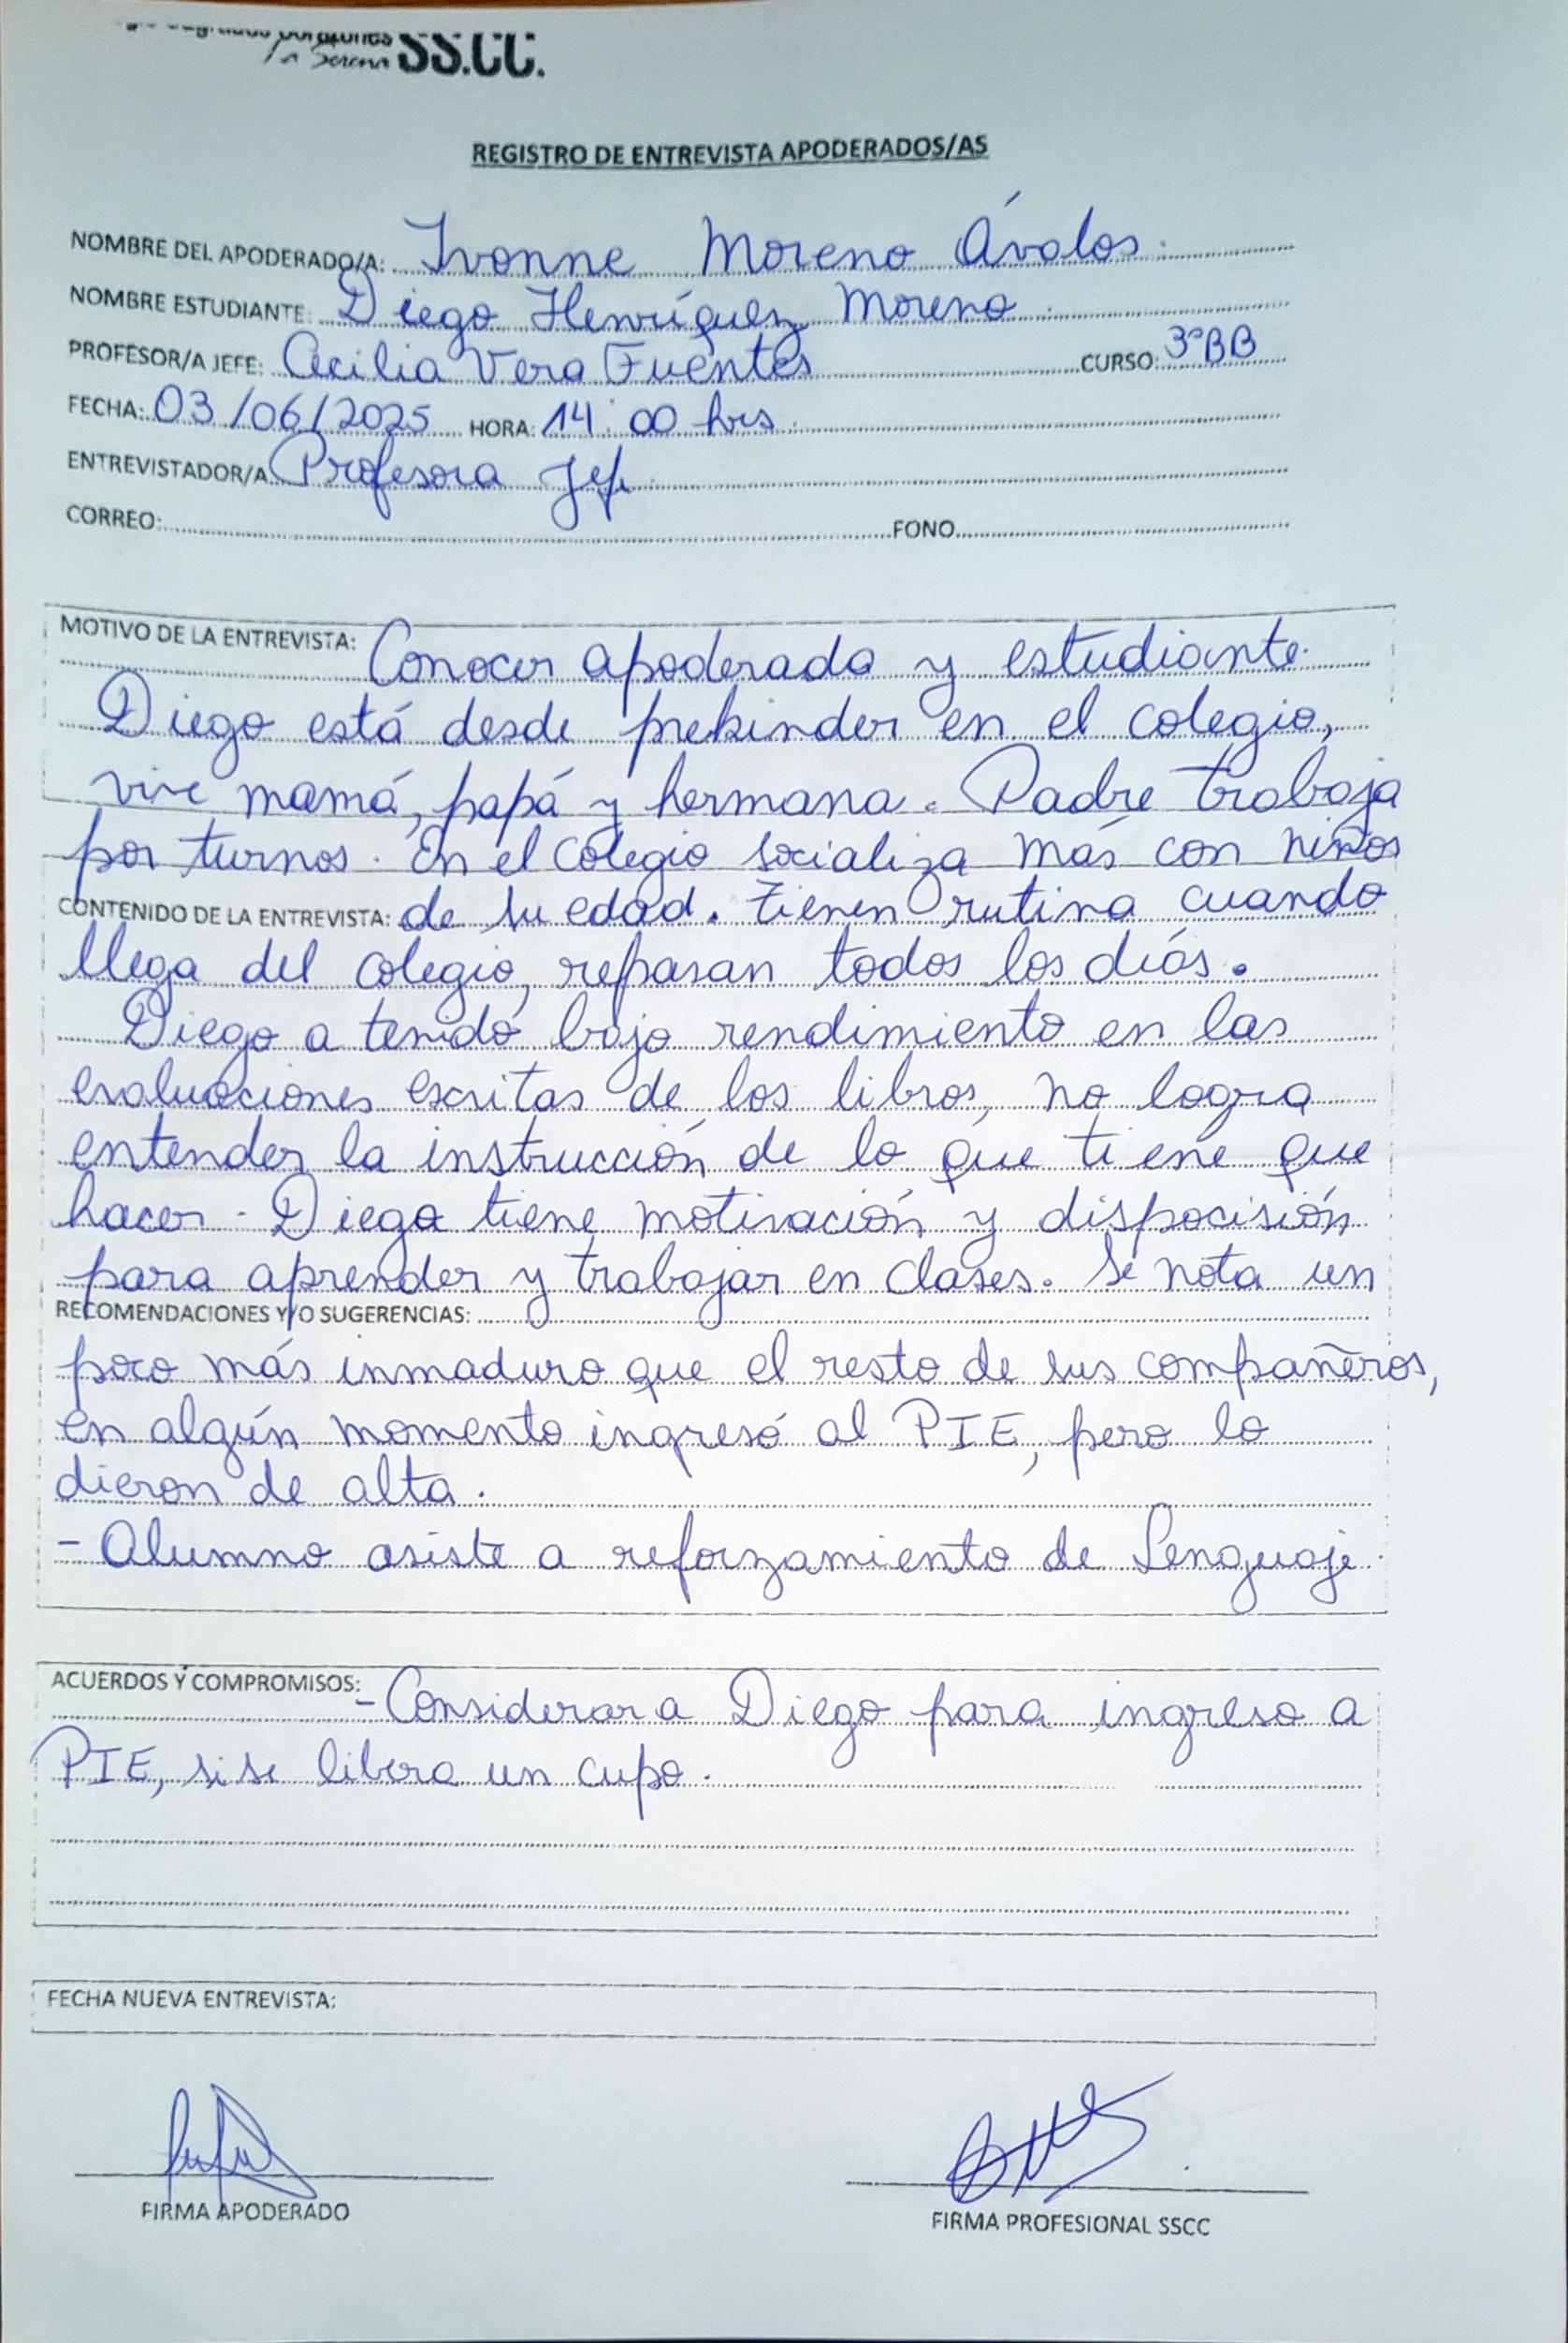 Corazones
La Serena SS.CC.
REGISTRO DE ENTREVISTA APODERADOS/AS
NOMBRE DEL APODERADO/A: Ivonne Moreno Ávalos.
NOMBRE ESTUDIANTE: Diego Henríquez Moreno
PROFESOR/A JEFE: Cecilia Vera Fuentes CURSO: 3°BB
FECHA: 03/06/2025 HORA: 14:00 hrs.
ENTREVISTADOR/A Profesora Jefe
CORREO: FONO
MOTIVO DE LA ENTREVISTA: Conocer apoderada y estudiante.
Diego está desde prekinder en el colegio,
vive mamá, papá y hermana. Padre trabaja
por turnos. En el colegio socializa más con niños
CONTENIDO DE LA ENTREVISTA: de su edad. Tienen rutina cuando
llega del colegio, repasan todos los días.
Diego a tenido bajo rendimiento en las
evaluaciones escritas de los libros, no logra
entender la instrucción de lo que tiene que
hacer. Diego tiene motivación y dispocisión
para aprender y trabajar en clases. Se nota un
RECOMENDACIONES Y/O SUGERENCIAS:
poco más inmaduro que el resto de sus compañeros,
en algún momento ingresó al PIE, pero lo
dieron de alta.
- Alumno asiste a reforzamiento de Lenguaje.
ACUERDOS Y COMPROMISOS: - Considerar a Diego para ingreso a
PIE, si se libera un cupo.
FECHA NUEVA ENTREVISTA:
FIRMA APODERADO
FIRMA PROFESIONAL SSCC